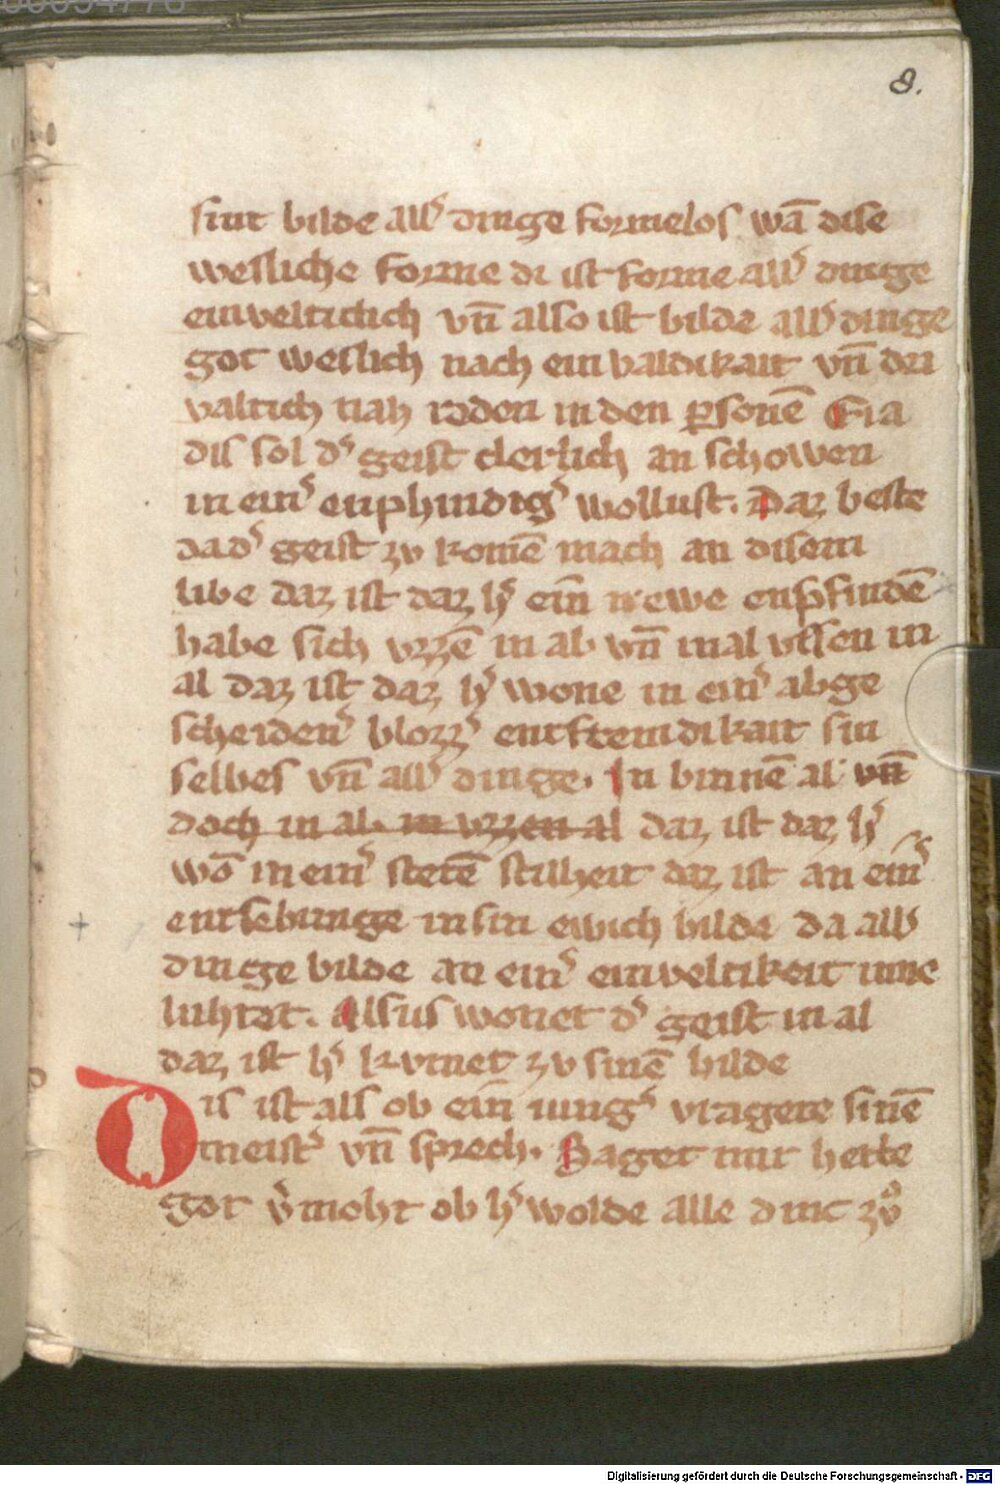 8.
sint bilde all᾽ dinge formelos wā dise
wesliche forme di ist forme all᾽ dinge
einveltichich vn̄ also ist bilde all᾽ dinge
got weslich nach einvaldikait vn̄ dri
valtich nah reden in den ꝑsonē Eia
dis sol d᾽ geist clerlich an schowen
in ein᾽ enphindig᾽ wollust. Daz beste
da d᾽ geist zv komē mach an disem
libe daz ist daz h᾽ ein̄ newe enpfindē
habe sich vzzē in al vn̄ in al vssen in
al daz ist daz h᾽ wone in ein᾽ abge
scheiden᾽ blozz᾽ entftemdikait sin
selbes vn̄ all᾽ dinge. In binnē al vn̄
doch in al. in vzzen al daz ist daz h᾽
wō in ein᾽ stetē stilheit daz ist an ein᾽
entsebunge in sin ewich bilde da all᾽
dinge bilde an ein᾽ einveltikeit inne
luhtet. Alsus wonet d᾽ geist in al
daz ist h᾽ kvmet zv sinē bilde
Dis ist als ob ein iung᾽ vragete sinē
meist᾽ vn̄ sprech. Saget mir hette
got v᾽moht ob h᾽ wolde alle dinc zvͦ
Digitalisierung gefördert durch die Deutsche Forschungsgemeinschaft - DFG